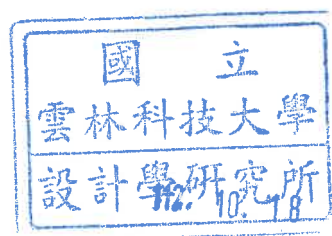 國立
雲林科技大學
設計學研究所
112. 10. 18